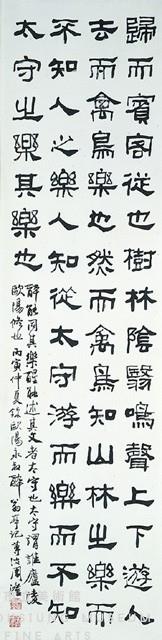 歸而賓客從也樹林陰翳鳴聲上下游人
去而禽鳥樂也然而禽鳥知山林之樂而
不知人之樂人知從太守游而樂而不知
太守之樂其樂也
醉能同其樂醒能述其文者太守也太守謂誰廬陵
歐陽修也丙寅仲夏錄歐陽永叔醉
翁亭記
美術館
MUSEUM
FINE ARTS